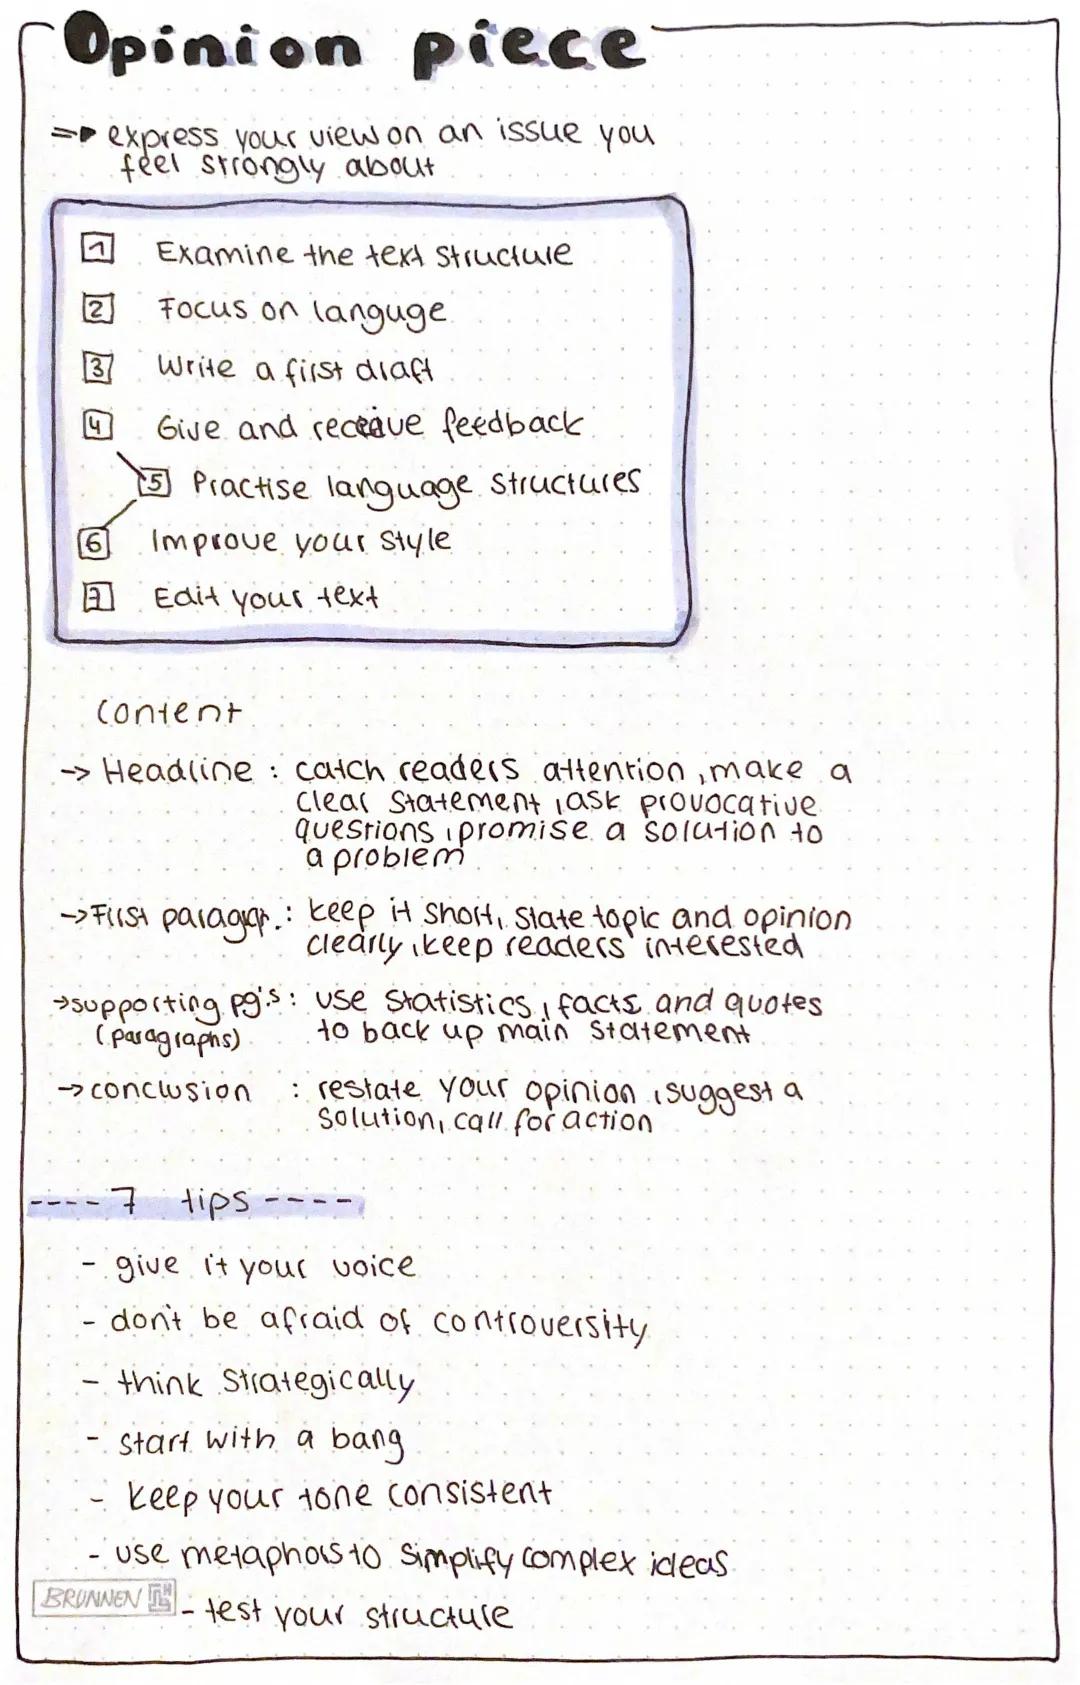 Opinion piece
=> express your view on an issue you
feel strongly about
1 Examine the text structure
2 Focus on languge
3 Write a first draft
4 Give and receive feedback
5 Practise language structures
6 Improve your style
7 Edit your text
Content
-> Headline : catch readers attention, make a
clear statement, ask provocative
questions, promise a solution to
a problem
-> First paragrap.: keep it short, state topic and opinion
clearly, keep readers interested
-> supporting pg's: use statistics, facts and quotes
(paragraphs) to back up main statement
-> conclusion : restate your opinion, suggest a
solution, call for action
---- 7 tips ----
- give it your voice
- don't be afraid of controversity
- think strategically
- start with a bang
- keep your tone consistent
- use metaphors to simplify complex ideas
BRUNNEN - test your structure